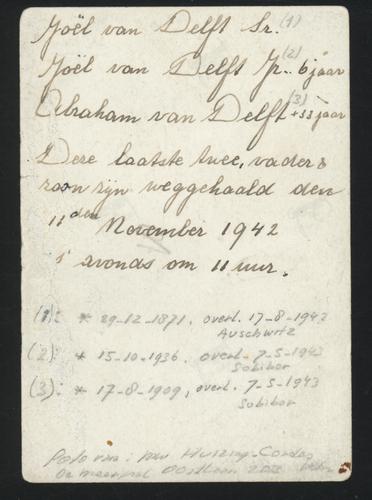 Joël van Delft Sr. (1)
Joël van Delft Jr. (2) 6 jaar
Abraham van Delft (3) + 33 jaar
Deze laatste twee, vader &
zoon zijn weggehaald den
11den November 1942
's avonds om 11 uur.
(1): * 29-12-1871, overl. 17-8-1942
Auschwitz
(2): * 15-10-1936, overl. 7-5-1943
Sobibor
(3): * 17-8-1909, overl. 7-5-1943
Sobibor
Foto van: mw Huizing-Cordes